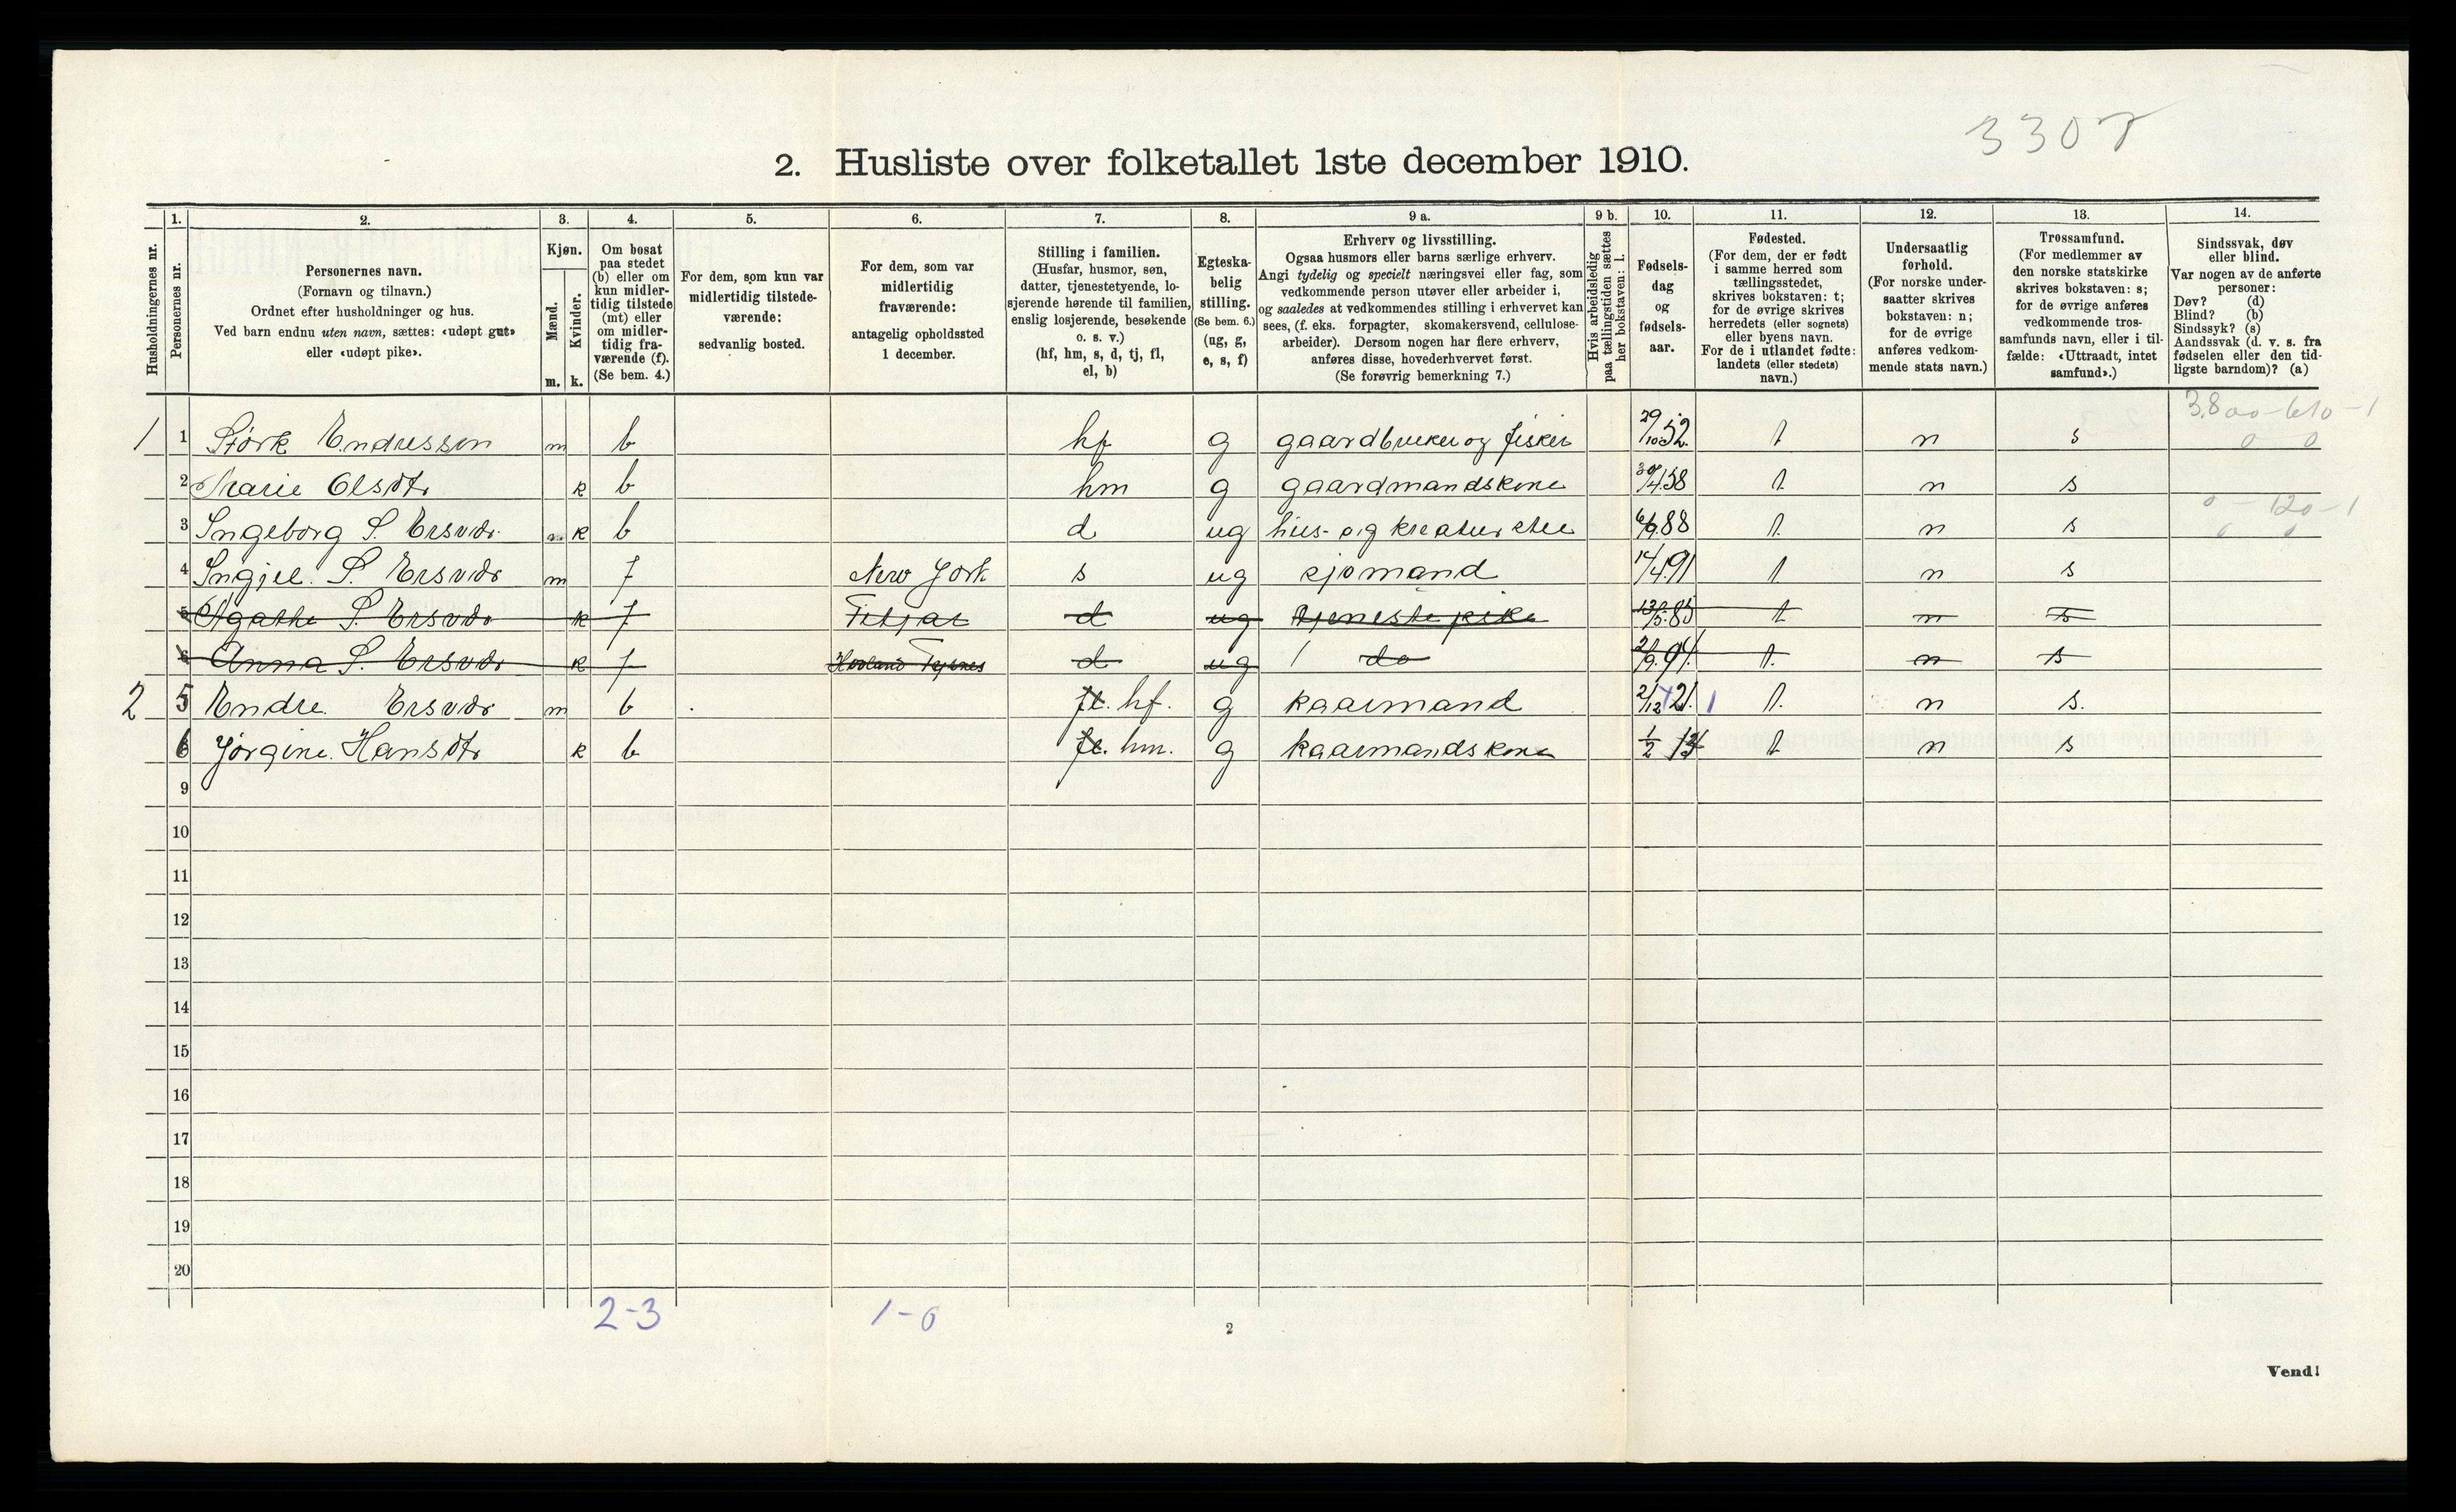 3307
2. Husliste over folketallet 1ste december 1910.
1. 2. 3. 4. 5. 6. 7. 8. 9 a. 9 b. 10. 11. 12. 13. 14.
Husholdningernes nr.
Personernes nr.
Personernes navn.
(Fornavn og tilnavn.)
Ordnet efter husholdninger og hus.
Ved barn endnu uten navn, sættes: «udøpt gut»
eller «udøpt pike».
Kjøn.
Mænd.
Kvinder.
m. k.
Om bosat
paa stedet
(b) eller om
kun midler-
tidig tilstede
(mt) eller
om midler-
tidig fra-
værende (f).
(Se bem. 4.)
For dem, som kun var
midlertidig tilstede-
værende:
sedvanlig bosted.
For dem, som var
midlertidig
fraværende:
antagelig opholdssted
1 december.
Stilling i familien.
(Husfar, husmor, søn,
datter, tjenestetyende, lo-
sjerende hørende til familien,
enslig losjerende, besøkende
o. s. v.)
(hf, hm, s, d, tj, fl,
el, b)
Egteska-
belig
stilling.
(Se bem. 6.)
(ug, g,
e, s, f)
Erhverv og livsstilling.
Ogsaa husmors eller barns særlige erhverv.
Angi tydelig og specielt næringsvei eller fag, som
vedkommende person utøver eller arbeider i,
og saaledes at vedkommendes stilling i erhvervet kan
sees, (f. eks. forpagter, skomakersvend, cellulose-
arbeider). Dersom nogen har flere erhverv,
anføres disse, hovederhvervet først.
(Se forøvrig bemerkning 7.)
Hvis arbeidsledig
paa tællingstiden sættes
her bokstaven: l.
Fødsels-
dag
og
fødsels-
aar.
Fødested.
(For dem, der er født
i samme herred som
tællingsstedet,
skrives bokstaven: t;
for de øvrige skrives
herredets (eller sognets)
eller byens navn.
For de i utlandet fødte:
landets (eller stedets)
navn.)
Undersaatlig
forhold.
(For norske under-
saatter skrives
bokstaven: n;
for de øvrige
anføres vedkom-
mende stats navn.)
Trossamfund.
(For medlemmer av
den norske statskirke
skrives bokstaven: s;
for de øvrige anføres
vedkommende tros-
samfunds navn, eller i til-
fælde: «Uttraadt, intet
samfund».)
Sindssvak, døv
eller blind.
Var nogen av de anførte
personer:
Døv? (d)
Blind? (b)
Sindssyk? (s)
Aandssvak (d. v. s. fra
fødselen eller den tid-
ligste barndom)? (a)
3.800-610-1
1 1 Størk Endresson m b hf g gaardbruker og fisker 29/10 52. t n s 0 0
2 Marie Olsdtr k b hm g gaardmandskone 30/4 58 t n s
0 - 120 - 1
3 Ingeborg S. Ersvær k b d ug hus- og kreaturstel 6/9 88 t n s 0 0
4 Ingjel. S. Ersvær m f New York s ug sjømand 14/4 91 t n s
5 Agathe S. Ersvær k f Fitjar d ug tjenestepike 13/5 85 t n s
6 Anna S. Ersvær k f Hovland Tysnes d ug do t n s
2 5 Endre Ersvær m b fl. hf. g kaarmand 2/12 21. t n s.
6 Jørgine Hansdtr k b fl. hm. g kaarmandskone t n s
9
10
11
12
13
14
15
16
17
18
19
20
2-3 1-0
2
Vend!